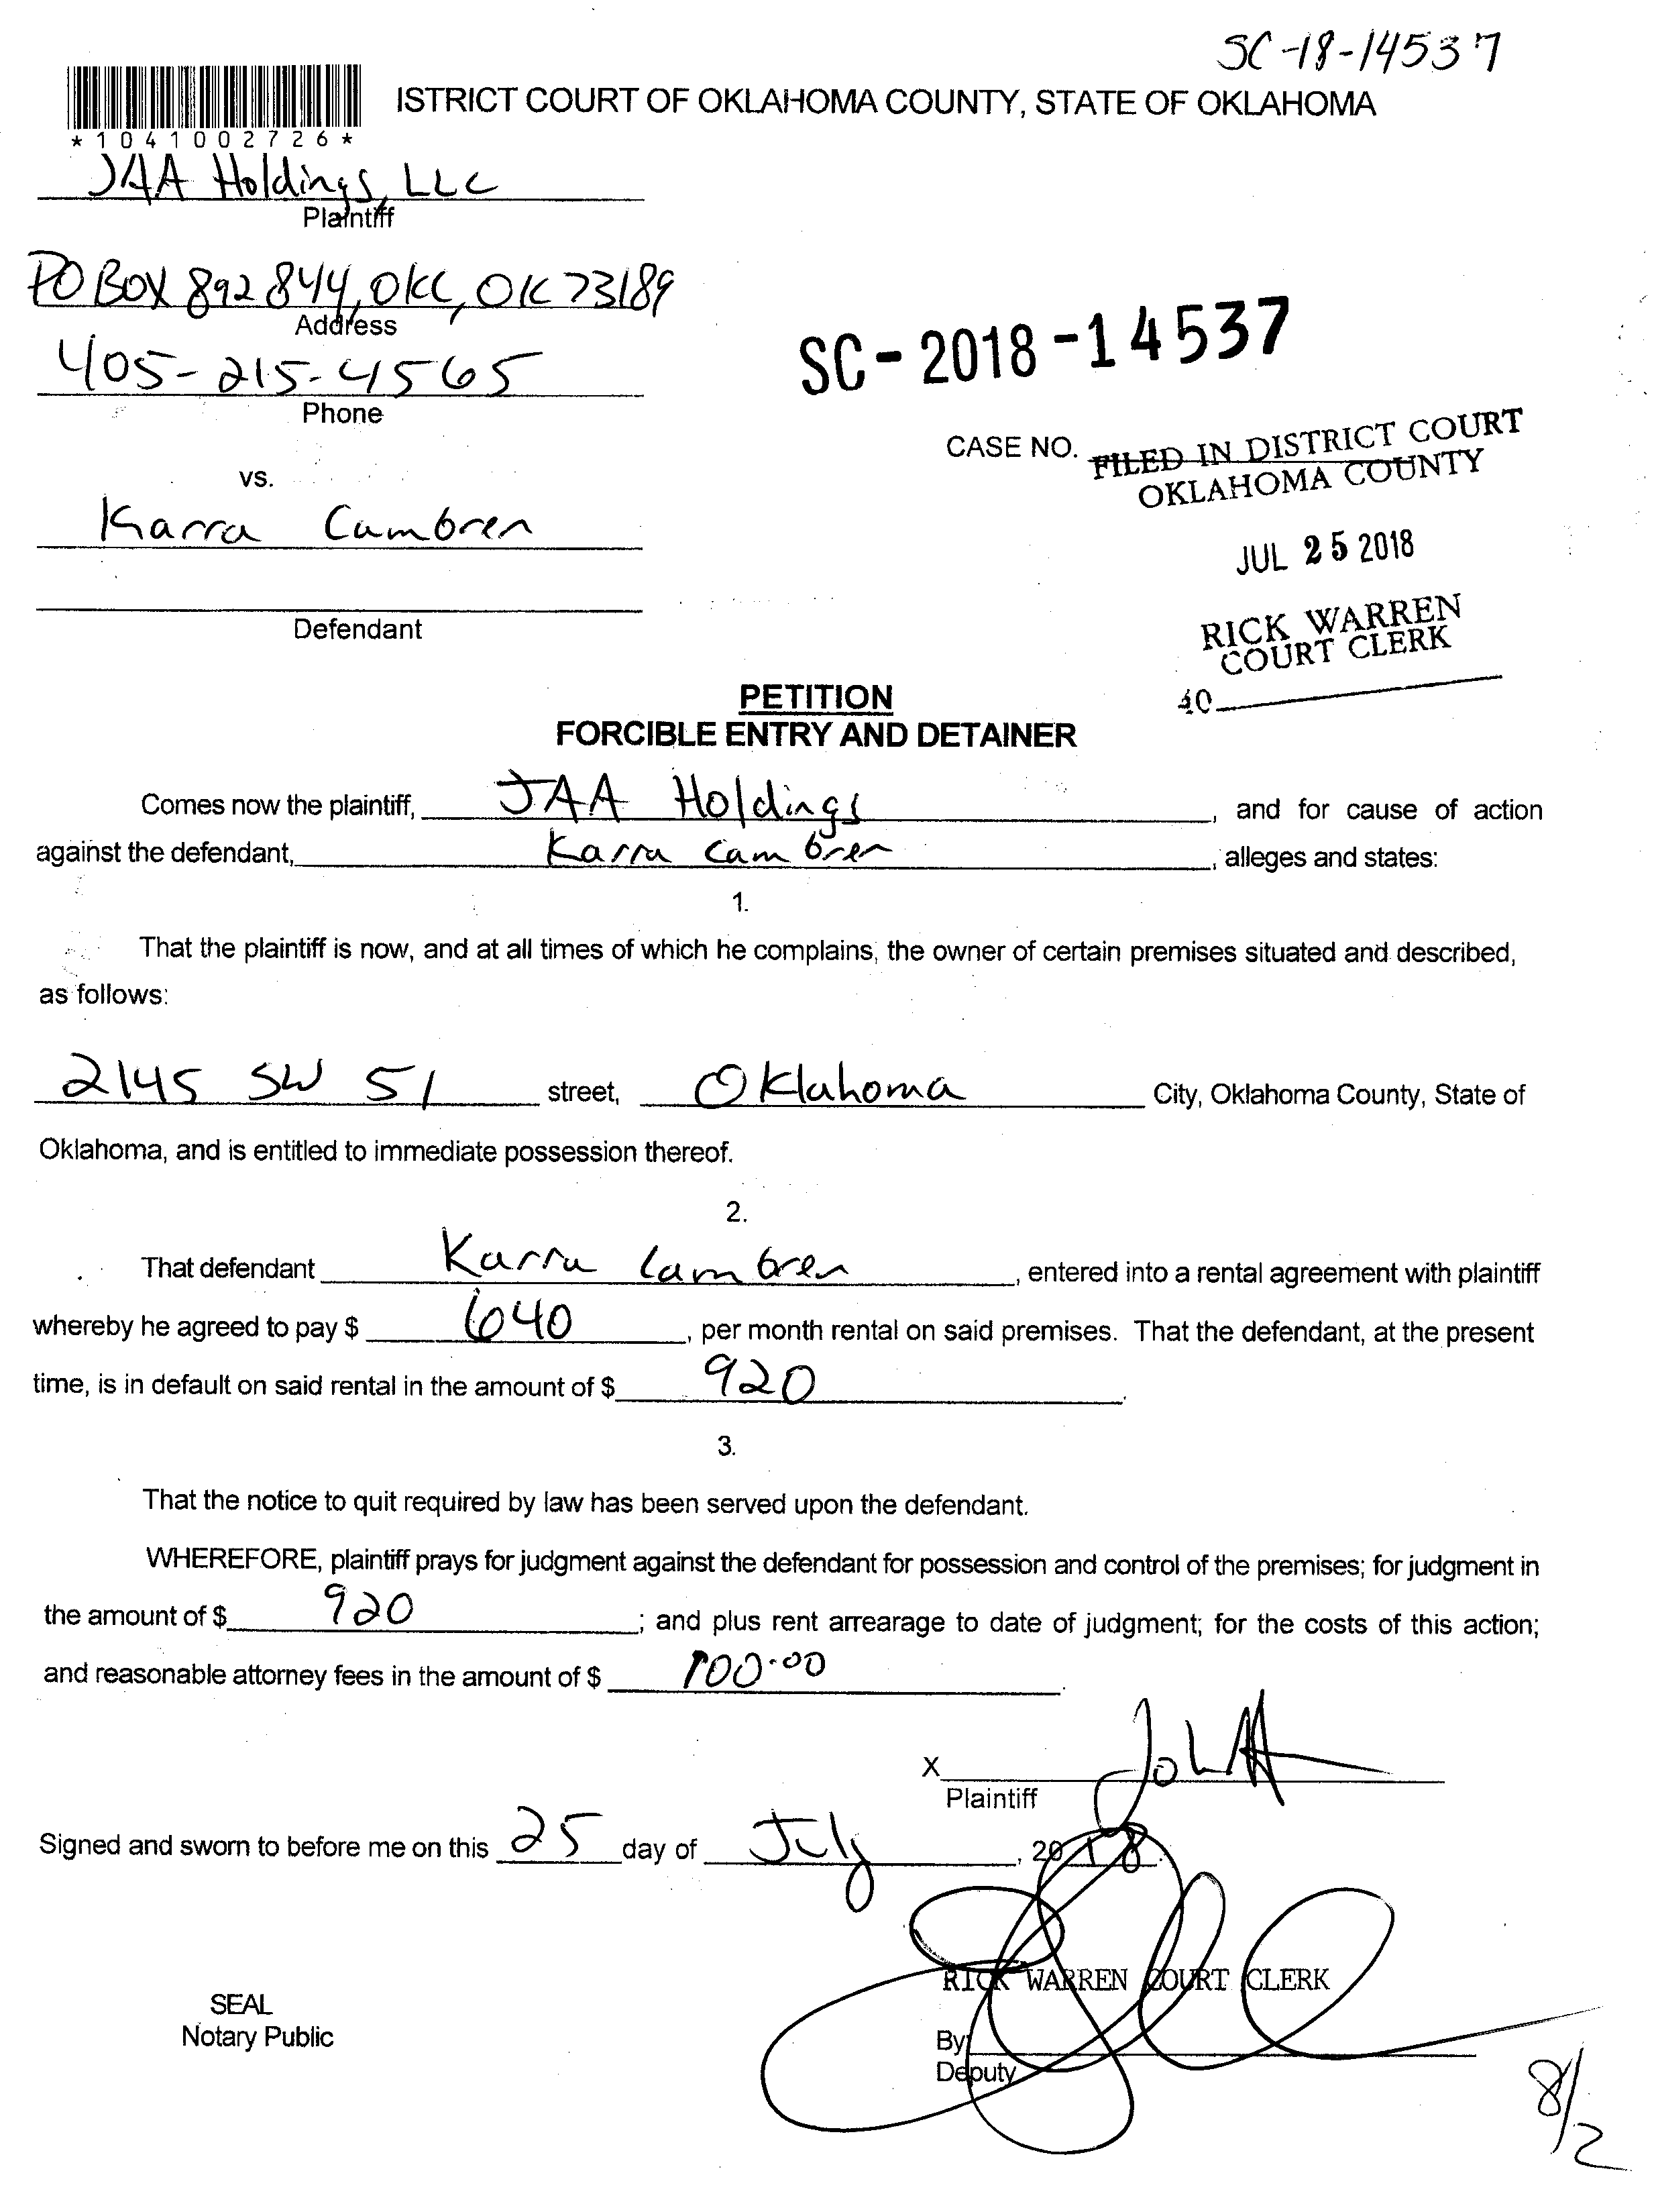 SC-18-14537
ISTRICT COURT OF OKLAHOMA COUNTY, STATE OF OKLAHOMA
*1041002726*
JAA Holdings, LLC
Plaintiff
PO BOX 892844, OKC, OK 73189
Address
405-215-4565
Phone
SC-2018-14537
CASE NO.
FILED IN DISTRICT COURT
OKLAHOMA COUNTY
vs.
Karra Cambren
JUL 25 2018
Defendant
RICK WARREN
COURT CLERK
40
PETITION
FORCIBLE ENTRY AND DETAINER
Comes now the plaintiff, JAA Holdings, and for cause of action
against the defendant, Karra Cambren, alleges and states:
1.
That the plaintiff is now, and at all times of which he complains, the owner of certain premises situated and described,
as follows:
2145 SW 51 street, Oklahoma City, Oklahoma County, State of
Oklahoma, and is entitled to immediate possession thereof.
2.
That defendant Karra Cambren, entered into a rental agreement with plaintiff
whereby he agreed to pay $ 640, per month rental on said premises. That the defendant, at the present
time, is in default on said rental in the amount of $ 920.
3.
That the notice to quit required by law has been served upon the defendant.
WHEREFORE, plaintiff prays for judgment against the defendant for possession and control of the premises; for judgment in
the amount of $ 920; and plus rent arrearage to date of judgment; for the costs of this action;
and reasonable attorney fees in the amount of $ 100.00.
X
Plaintiff
Signed and sworn to before me on this 25 day of July, 2018.
RICK WARREN COURT CLERK
SEAL
Notary Public
By
Deputy
8/2